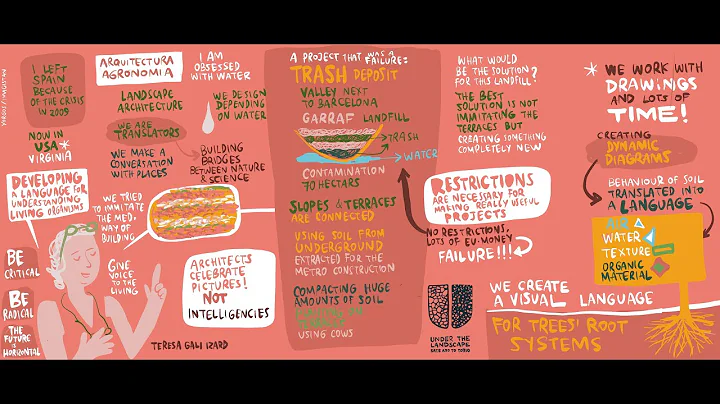 I LEFT
SPAIN
BECAUSE
OF THE CRISIS
IN 2009
NOW IN
USA*
VIRGINIA
DEVELOPING
A LANGUAGE FOR
UNDERSTANDING
LIVING ORGANISMS
BE
CRITICAL
BE
RADICAL
THE
FUTURE
IS
HORIZONTAL
ARQUITECTURA
AGRONOMIA
LANDSCAPE
ARCHITECTURE
WE ARE
TRANSLATORS
WE MAKE A
CONVERSATION
WITH PLACES
WE TRIED
TO IMMITATE
THE MED.
WAY OF
BUILDING
GIVE
VOICE TO
THE LIVING
TERESA GALI IZARD
I AM
OBSESSED
WITH WATER
WE DESIGN
DEPENDING
ON WATER
BUILDING
BRIDGES
BETWEEN NATURE
& SCIENCE
ARCHITECTS
CELEBRATE
PICTURES!
NOT
INTELLIGENCIES
A PROJECT THAT WAS A
FAILURE:
TRASH DEPOSIT
VALLEY NEXT
TO BARCELONA
GARRAF LANDFILL
TRASH
WATER
CONTAMINATION
70 HECTARS
SLOPES & TERRACES
ARE CONNECTED
USING SOIL FROM
UNDERGROUND
EXTRACTED FOR THE
METRO CONSTRUCTION
COMPACTING HUGE
AMOUNTS OF SOIL
USING COWS
WHAT WOULD
BE THE SOLUTION
FOR THIS LANDFILL?
THE BEST
SOLUTION IS NOT
IMMITATING THE
TERRACES BUT
CREATING SOMETHING
COMPLETELY NEW
RESTRICTIONS
ARE NECESSARY FOR
MAKING REALLY USEFUL
PROJECTS
NO RESTRICTIONS,
LOTS OF EU-MONEY
FAILURE!!!
UNDER THE
LANDSCAPE
* WE WORK WITH
DRAWINGS
AND LOTS OF
TIME!
CREATING
DYNAMIC
DIAGRAMS
BEHAVIOUR OF SOIL
TRANSLATED INTO
A LANGUAGE
AIR
WATER
TEXTURE
ORGANIC
MATERIAL
WE CREATE
A VISUAL LANGUAGE
FOR TREES' ROOT
SYSTEMS